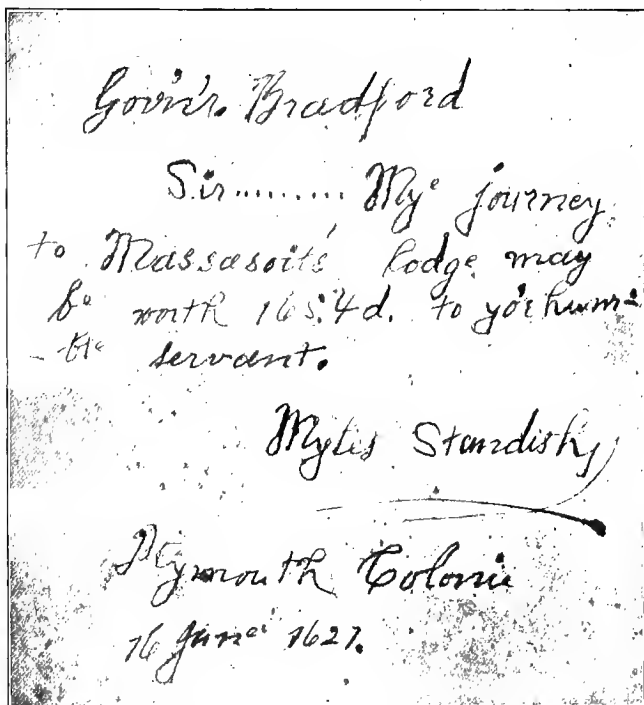 Govn'r. Bradford
Sir......... Mye journey
to Massasoit's lodge may
be worth 16s.4d. to yo'r hum=
-ble servant.
Myles Standish
Plymouth Colonie
16 June 1621.